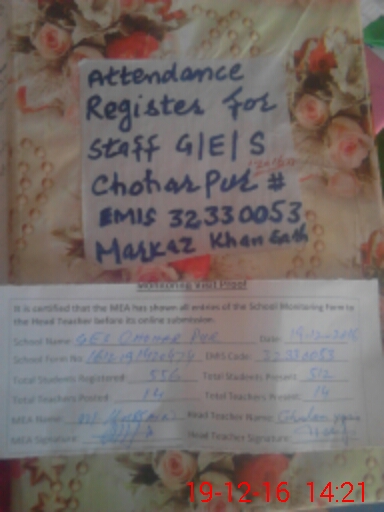 Attendance
Register for
Staff G/E/S
Chohar Pur #
EMIS 32330053
Markaz Khan Garh
Monitoring Visit Proof
It is certified that the MEA has shown all entries of the School Monitoring form to
the Head Teacher before its online submission.
School Name: GES CHOHAR PUR Date: 19-12-2016
School Form No: EMIS Code: 32330053
Total Students Registered: 556 Total Students Present: 512
Total Teachers Posted: 14 Total Teachers Present: 14
MEA Name: M. Head Teacher Name: Ghulam
MEA Signature: Head Teacher Signature:
19-12-16 14:21